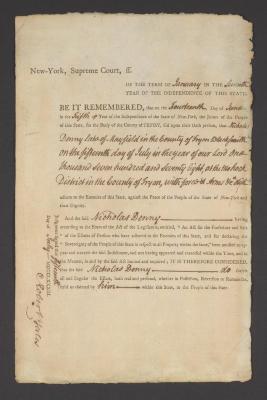 New-York, Supreme Court, ss.
OF THE TERM OF January IN THE Seventh
YEAR OF THE INDEPENDENCE OF THIS STATE.
BE IT REMEMBERED, that on the fourteenth Day of
in the fifth Year of the Independence of the State of New-York, the Jurors of the People
of this State, for the Body of the County of TRYON, did upon their Oath present, that Nicholas
Denny late of Mayfield in the County of Tryon Blacksmith
on the fifteenth day of July in the year of our Lord One
thousand seven hundred and Seventy Eight at the
District in the County of Tryon, with force & Arms &c did
adhere to the Enemies of the State, against the Peace of the People of the State of New-York and
their Dignity.
And the said Nicholas Denny having
according to the Form of the Act of the Legislature, entitled, "An Act for the Forfeiture and Sale
"of the Estates of Persons who have adhered to the Enemies of this State, and for declaring the
"Sovereignty of the People of this State in respect to all Property within the same," been
and not having appeared and traversed within the Time, and in
the Manner, in and by the said Act limited and required; IT IS THEREFORE CONSIDERED,
that the said Nicholas Denny do
all and singular the Estate, both real and personal, whether in Possession, Reversion or Remainder,
held or claimed by him within this State, to the People of this State.